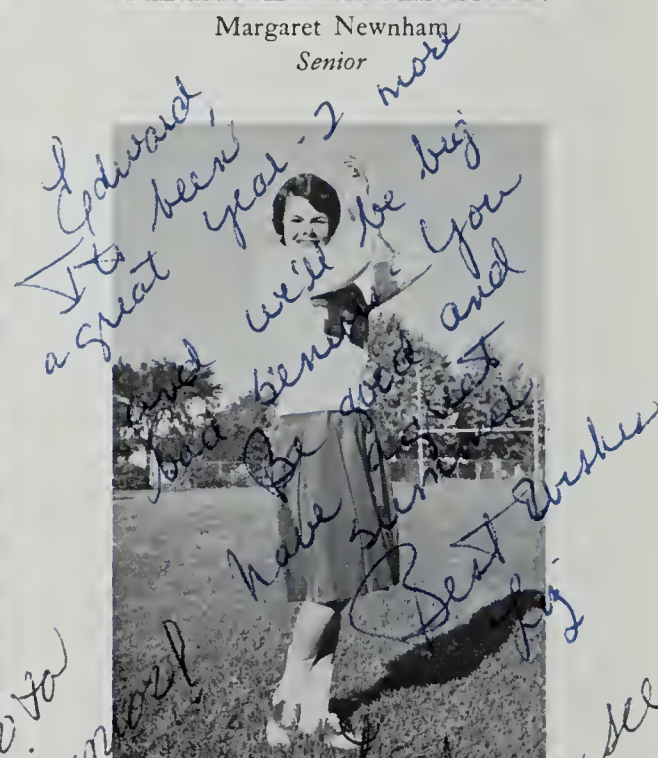 Margaret Newnham
Senior
Edward,
Its been
a great year - 2 more
and we'll be big
bad seniors. You
Be good and
have a great
summer
Best Wishes
Liz
see